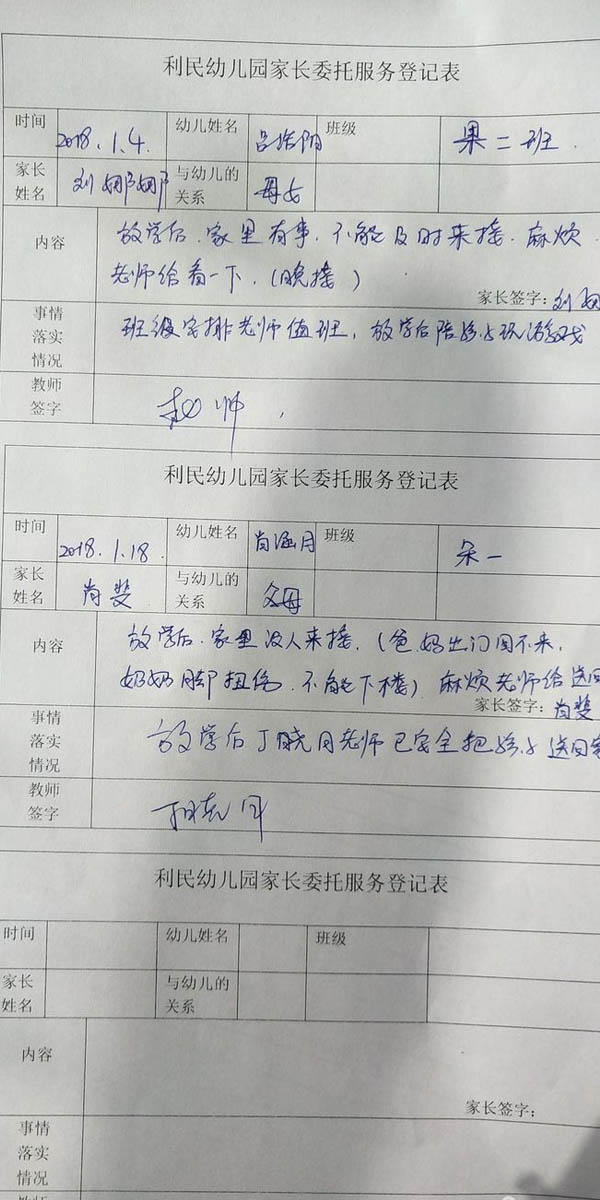 利民幼儿园家长委托服务登记表
时间 2018.1.4. 幼儿姓名 吕浩阳 班级 果二班.
家长姓名 刘娜娜 与幼儿的关系 母女
内容 放学后.家里有事.不能及时来接.麻烦
老师给看一下.(晚接)
家长签字:刘娜
事情落实情况 班级安排老师值班,放学后陪孩子玩游戏
教师签字 师.
利民幼儿园家长委托服务登记表
时间 2018.1.18. 幼儿姓名 肖涵月 班级 朵一
家长姓名 肖斐 与幼儿的关系 父母
内容 放学后.家里没人来接.(爸.妈出门回不来,
奶奶脚扭伤.不能下楼)麻烦老师给送回
家长签字:肖斐
事情落实情况 放学后丁晓月老师已安全把孩子送回家
教师签字
利民幼儿园家长委托服务登记表
时间 幼儿姓名 班级
家长姓名 与幼儿的关系
内容
家长签字:
事情落实情况
教师